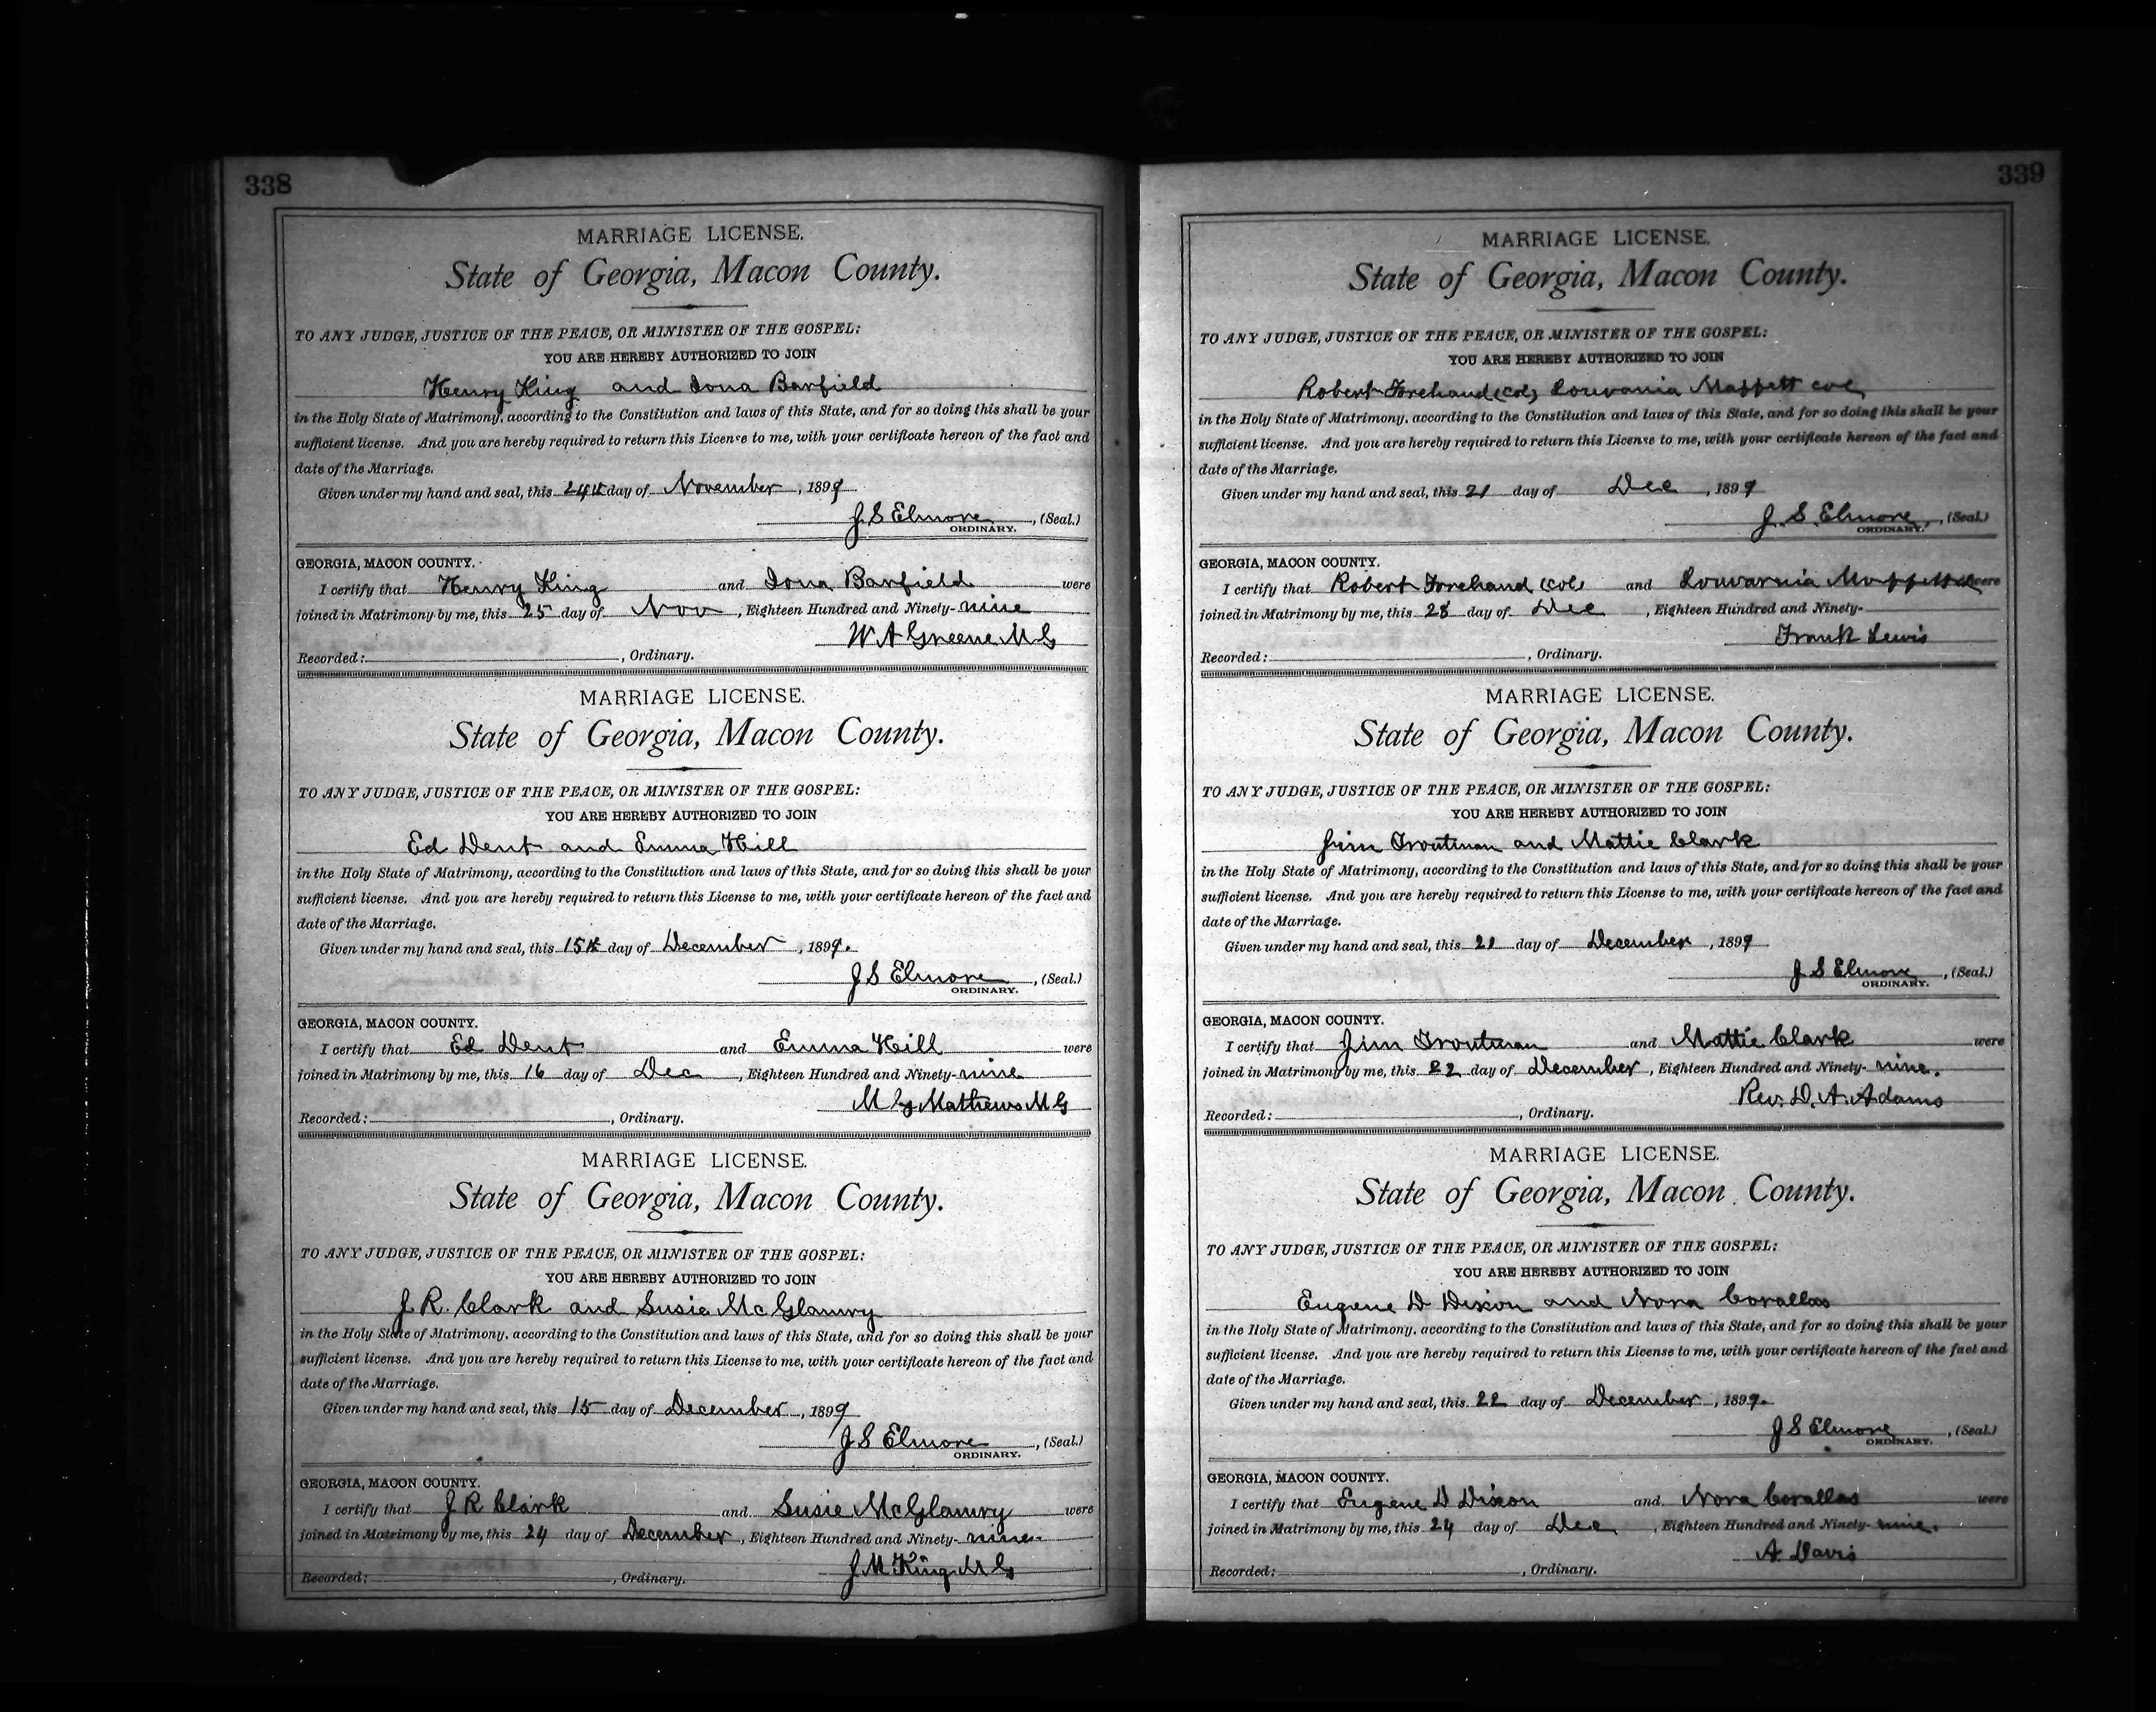 338
MARRIAGE LICENSE.
State of Georgia, Macon County.
TO ANY JUDGE, JUSTICE OF THE PEACE, OR MINISTER OF THE GOSPEL:
YOU ARE HEREBY AUTHORIZED TO JOIN
Henry King and Iona Barfield
in the Holy State of Matrimony, according to the Constitution and laws of this State, and for so doing this shall be your
sufficient license. And you are hereby required to return this License to me, with your certificate hereon of the fact and
date of the Marriage.
Given under my hand and seal, this 24th day of November, 1899
J. S Elmore, (Seal.)
ORDINARY.
GEORGIA, MACON COUNTY.
I certify that Henry King and Iona Barfield were
joined in Matrimony by me, this 25 day of Nov, Eighteen Hundred and Ninety-nine
W A Greene M G
Recorded: , Ordinary.
MARRIAGE LICENSE.
State of Georgia, Macon County.
TO ANY JUDGE, JUSTICE OF THE PEACE, OR MINISTER OF THE GOSPEL:
YOU ARE HEREBY AUTHORIZED TO JOIN
Ed Dent and Emma Hill
in the Holy State of Matrimony, according to the Constitution and laws of this State, and for so doing this shall be your
sufficient license. And you are hereby required to return this License to me, with your certificate hereon of the fact and
date of the Marriage.
Given under my hand and seal, this 15th day of December, 1899.
J S Elmore, (Seal.)
ORDINARY.
GEORGIA, MACON COUNTY.
I certify that Ed Dent and Emma Hill were
joined in Matrimony by me, this 16 day of Dec, Eighteen Hundred and Ninety-nine
M Mathews M G
Recorded: , Ordinary.
MARRIAGE LICENSE.
State of Georgia, Macon County.
TO ANY JUDGE, JUSTICE OF THE PEACE, OR MINISTER OF THE GOSPEL:
YOU ARE HEREBY AUTHORIZED TO JOIN
J. R. Clark and Susie McGlamry
in the Holy State of Matrimony, according to the Constitution and laws of this State, and for so doing this shall be your
sufficient license. And you are hereby required to return this License to me, with your certificate hereon of the fact and
date of the Marriage.
Given under my hand and seal, this 15 day of December, 1899
J S Elmore, (Seal.)
ORDINARY.
GEORGIA, MACON COUNTY.
I certify that J R Clark and Susie McGlamry were
joined in Matrimony by me, this 24 day of December, Eighteen Hundred and Ninety-nine
J M King M G
Recorded: , Ordinary.
339
MARRIAGE LICENSE.
State of Georgia, Macon County.
TO ANY JUDGE, JUSTICE OF THE PEACE, OR MINISTER OF THE GOSPEL:
YOU ARE HEREBY AUTHORIZED TO JOIN
Robert Forehand (col) Louvania Moffett col
in the Holy State of Matrimony, according to the Constitution and laws of this State, and for so doing this shall be your
sufficient license. And you are hereby required to return this License to me, with your certificate hereon of the fact and
date of the Marriage.
Given under my hand and seal, this 21 day of Dec, 1899
J. S. Elmore, (Seal.)
ORDINARY.
GEORGIA, MACON COUNTY.
I certify that Robert Forehand (col) and Louvarnia were
joined in Matrimony by me, this 28 day of Dec, Eighteen Hundred and Ninety-
Frank Lewis
Recorded: , Ordinary.
MARRIAGE LICENSE.
State of Georgia, Macon County.
TO ANY JUDGE, JUSTICE OF THE PEACE, OR MINISTER OF THE GOSPEL:
YOU ARE HEREBY AUTHORIZED TO JOIN
Jim Troutman and Mattie Clark
in the Holy State of Matrimony, according to the Constitution and laws of this State, and for so doing this shall be your
sufficient license. And you are hereby required to return this License to me, with your certificate hereon of the fact and
date of the Marriage.
Given under my hand and seal, this 21 day of December, 1899
J S Elmore, (Seal.)
ORDINARY.
GEORGIA, MACON COUNTY.
I certify that Jim Troutman and Mattie Clark were
joined in Matrimony by me, this 22 day of December, Eighteen Hundred and Ninety-nine.
Rev. D. A. Adams
Recorded: , Ordinary.
MARRIAGE LICENSE.
State of Georgia, Macon County.
TO ANY JUDGE, JUSTICE OF THE PEACE, OR MINISTER OF THE GOSPEL:
YOU ARE HEREBY AUTHORIZED TO JOIN
Eugene D Dixon and Nora Corallas
in the Holy State of Matrimony, according to the Constitution and laws of this State, and for so doing this shall be your
sufficient license. And you are hereby required to return this License to me, with your certificate hereon of the fact and
date of the Marriage.
Given under my hand and seal, this 22 day of December, 1899.
J S Elmore, (Seal.)
ORDINARY.
GEORGIA, MACON COUNTY.
I certify that Eugene D Dixon and Nora Corallas were
joined in Matrimony by me, this 24 day of Dec, Eighteen Hundred and Ninety-nine.
A. Davis
Recorded: , Ordinary.